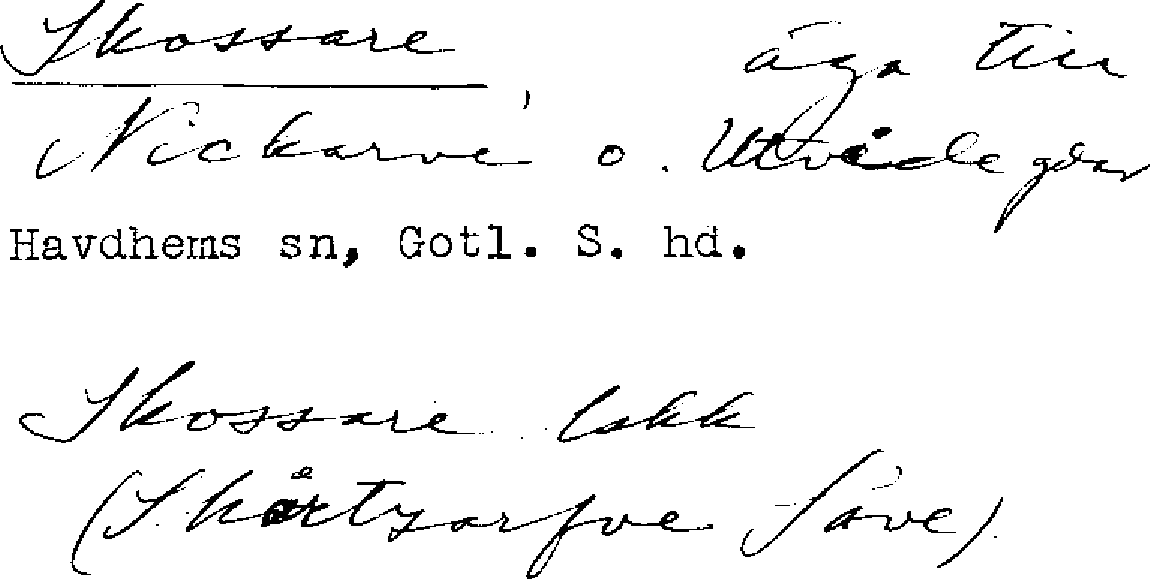 Skossare, äga till
Nickarve o. Utvide gdar
Havdhems sn, Gotl. S. hd.
Skossare Lskk
(Skårtsarfve Säve)